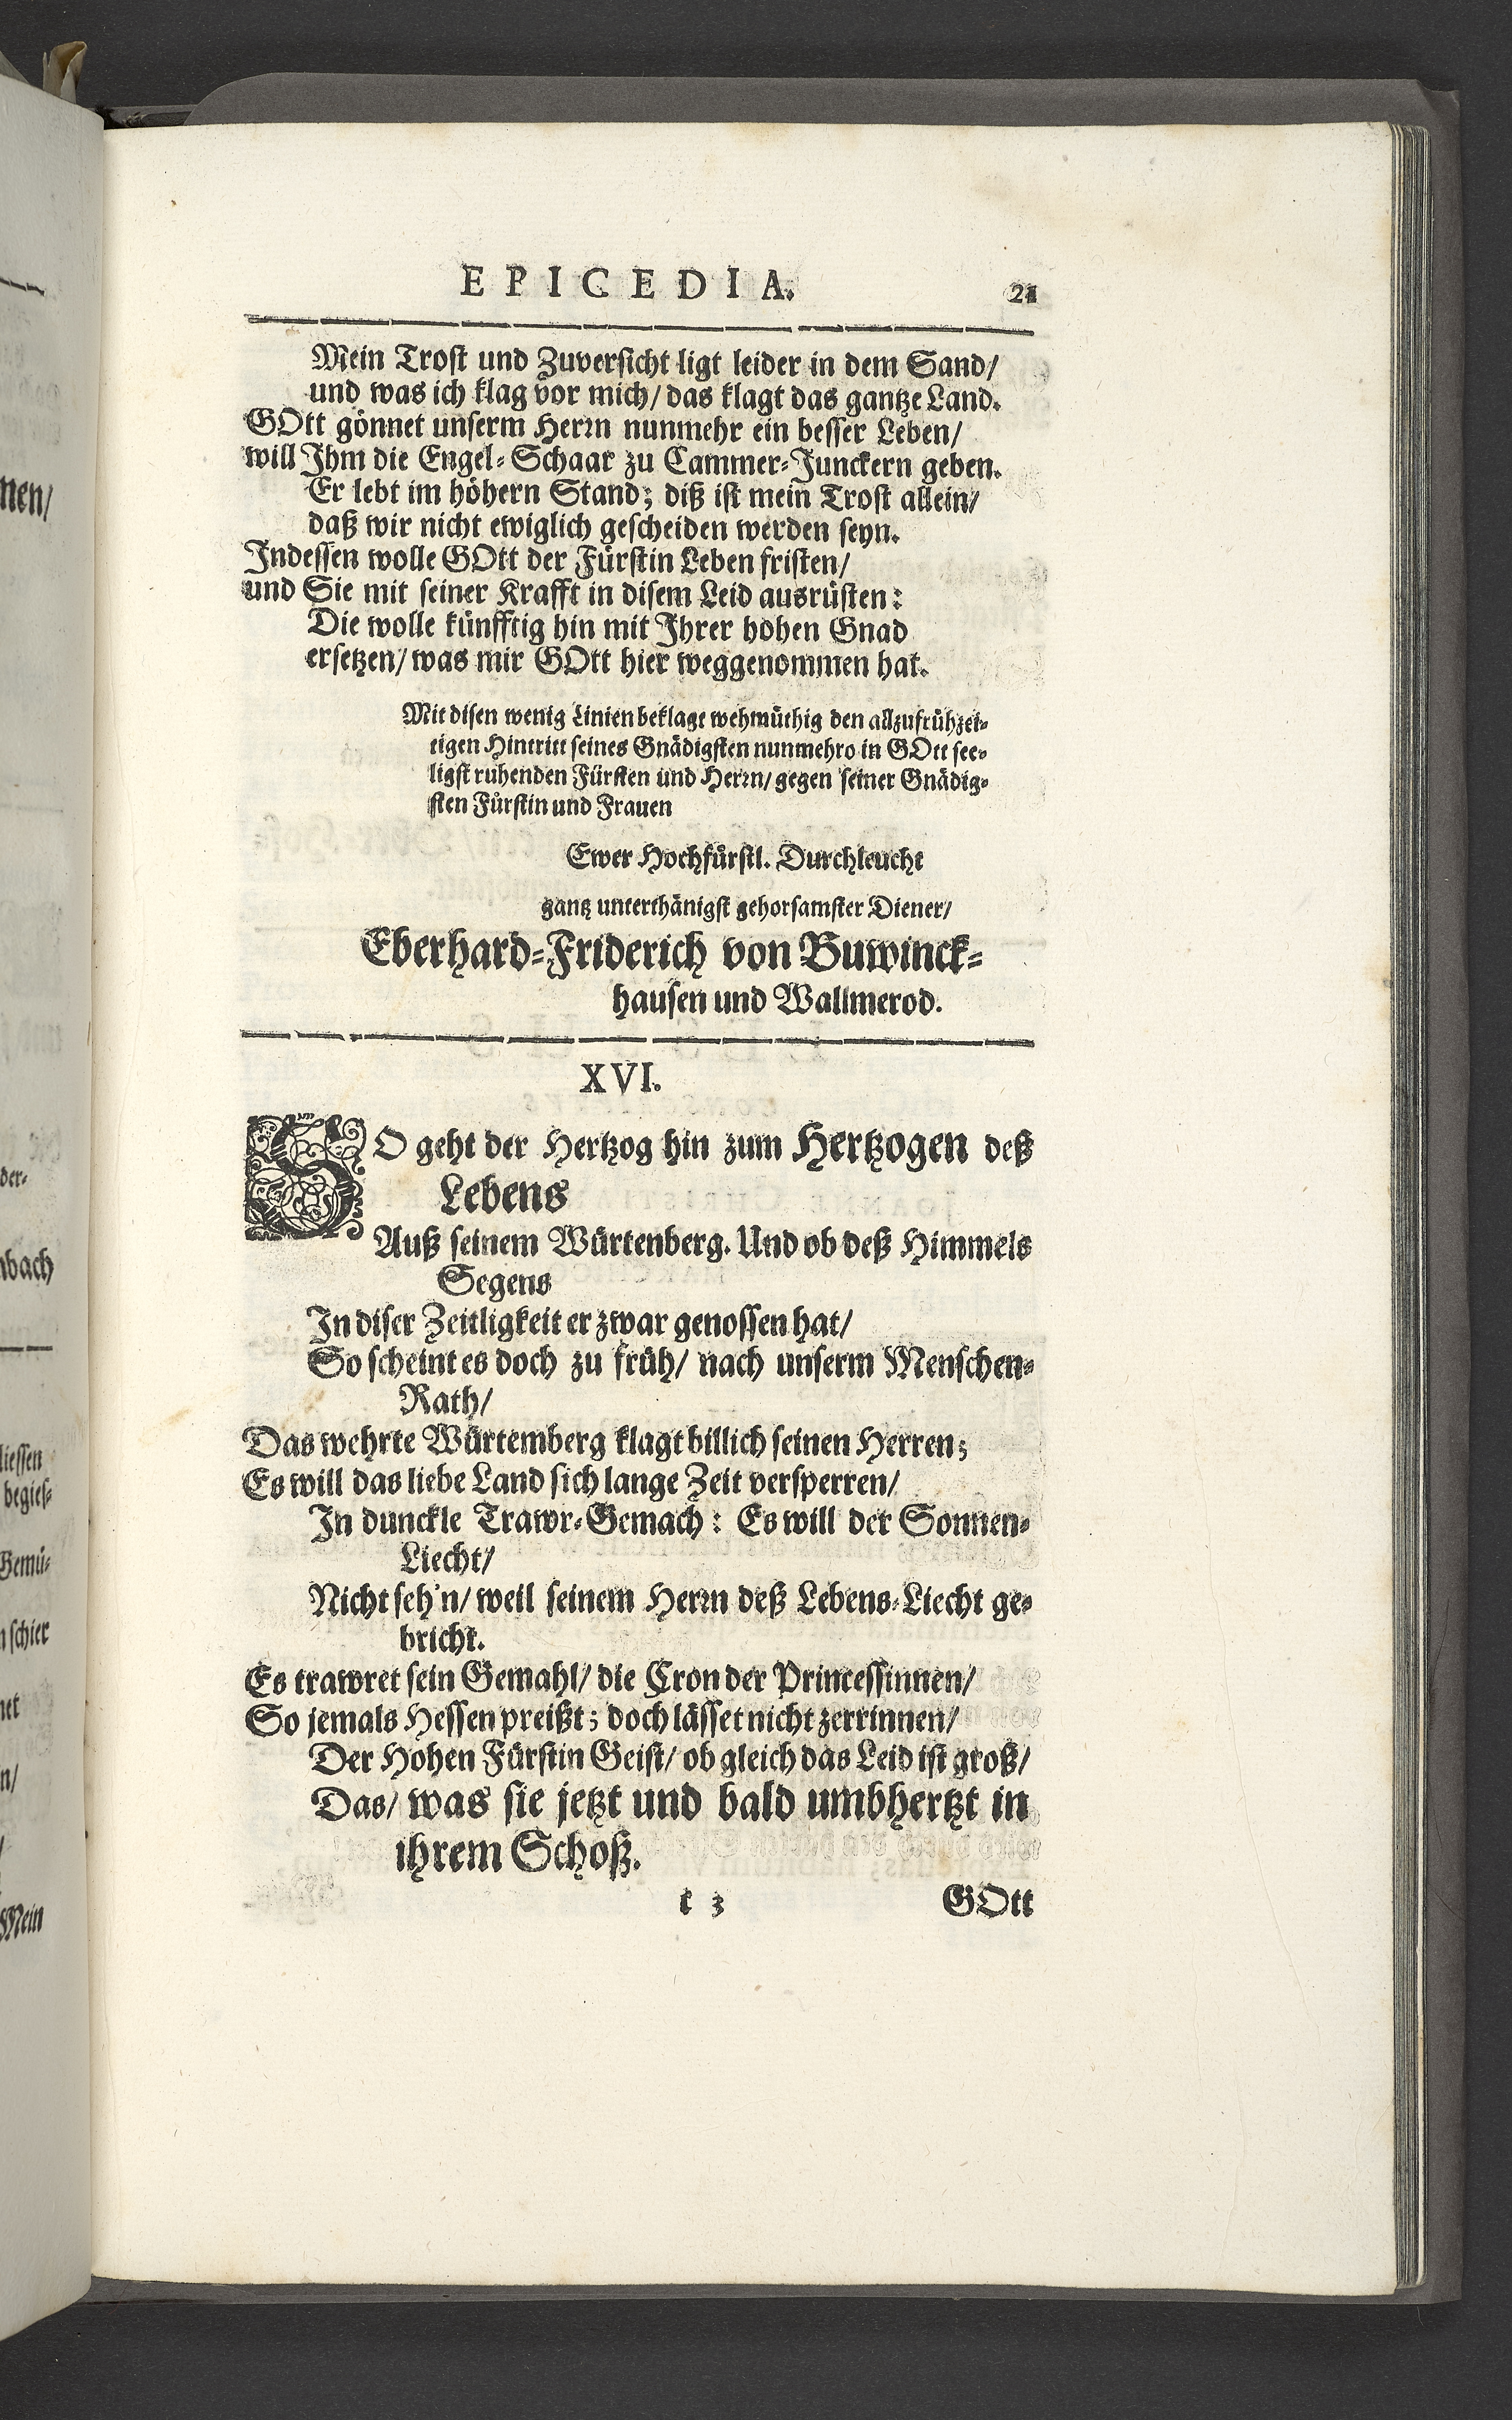 EPICEDIA. 21
Mein Trost und Zuversicht ligt leider in dem Sand/
und was ich klag vor mich/ das klagt das gantze Land.
GOtt gönnet unserm Herrn nunmehr ein besser Leben/
will Ihm die Engel-Schaar zu Cammer-Junckern geben.
Er lebt im höhern Stand; diß ist mein Trost allein/
daß wir nicht ewiglich gescheiden werden seyn.
Indessen wolle GOtt der Fürstin Leben fristen/
und Sie mit seiner Krafft in disem Leid ausrüsten:
Die wolle künfftig hin mit Ihrer hohen Gnad
ersetzen/ was mir GOtt hier weggenommen hat.
Mit disen wenig Linien beklagt wehmüthig den allzufrühzei-
tigen Hintritt seines Gnädigsten nunmehro in GOtt see-
ligst ruhenden Fürsten und Herrn/ gegen seiner Gnädig-
sten Fürstin und Frauen
Ewer Hochfürstl. Durchleucht
gantz unterthänigst gehorsamster Diener/
Eberhard-Friderich von Buwinck-
hausen und Wallmerod.
XVI.
SO geht der Hertzog hin zum Hertzogen deß
Lebens
Auß seinem Würtenberg. Und ob deß Himmels
Segens
In diser Zeitligkeit er zwar genossen hat/
So scheint es doch zu früh/ nach unserm Menschen-
Rath/
Das wehrte Würtemberg klagt billich seinen Herren;
Es will das liebe Land sich lange Zeit versperren/
In dunckle Trawr-Gemach: Es will der Sonnen-
Liecht/
Nicht seh'n/ weil seinem Herrn deß Lebens-Liecht ge-
bricht.
Es trawret sein Gemahl/ die Cron der Princessinnen/
So jemals Hessen preißt; doch lässet nicht zerrinnen/
Der Hohen Fürstin Geist/ ob gleich das Leid ist groß/
Das/ was sie jetzt und bald umbhertzt in
ihrem Schoß.
k 3 GOtt
nen/
der-
nbach
liessen
begies-
Gemü-
n schier
net
n/
/
Mein